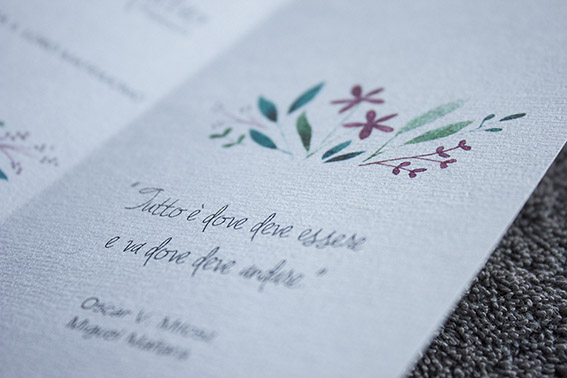 "Tutto è dove deve essere
e va dove deve andare."
Oscar V. Milosz
Miguel Mañara